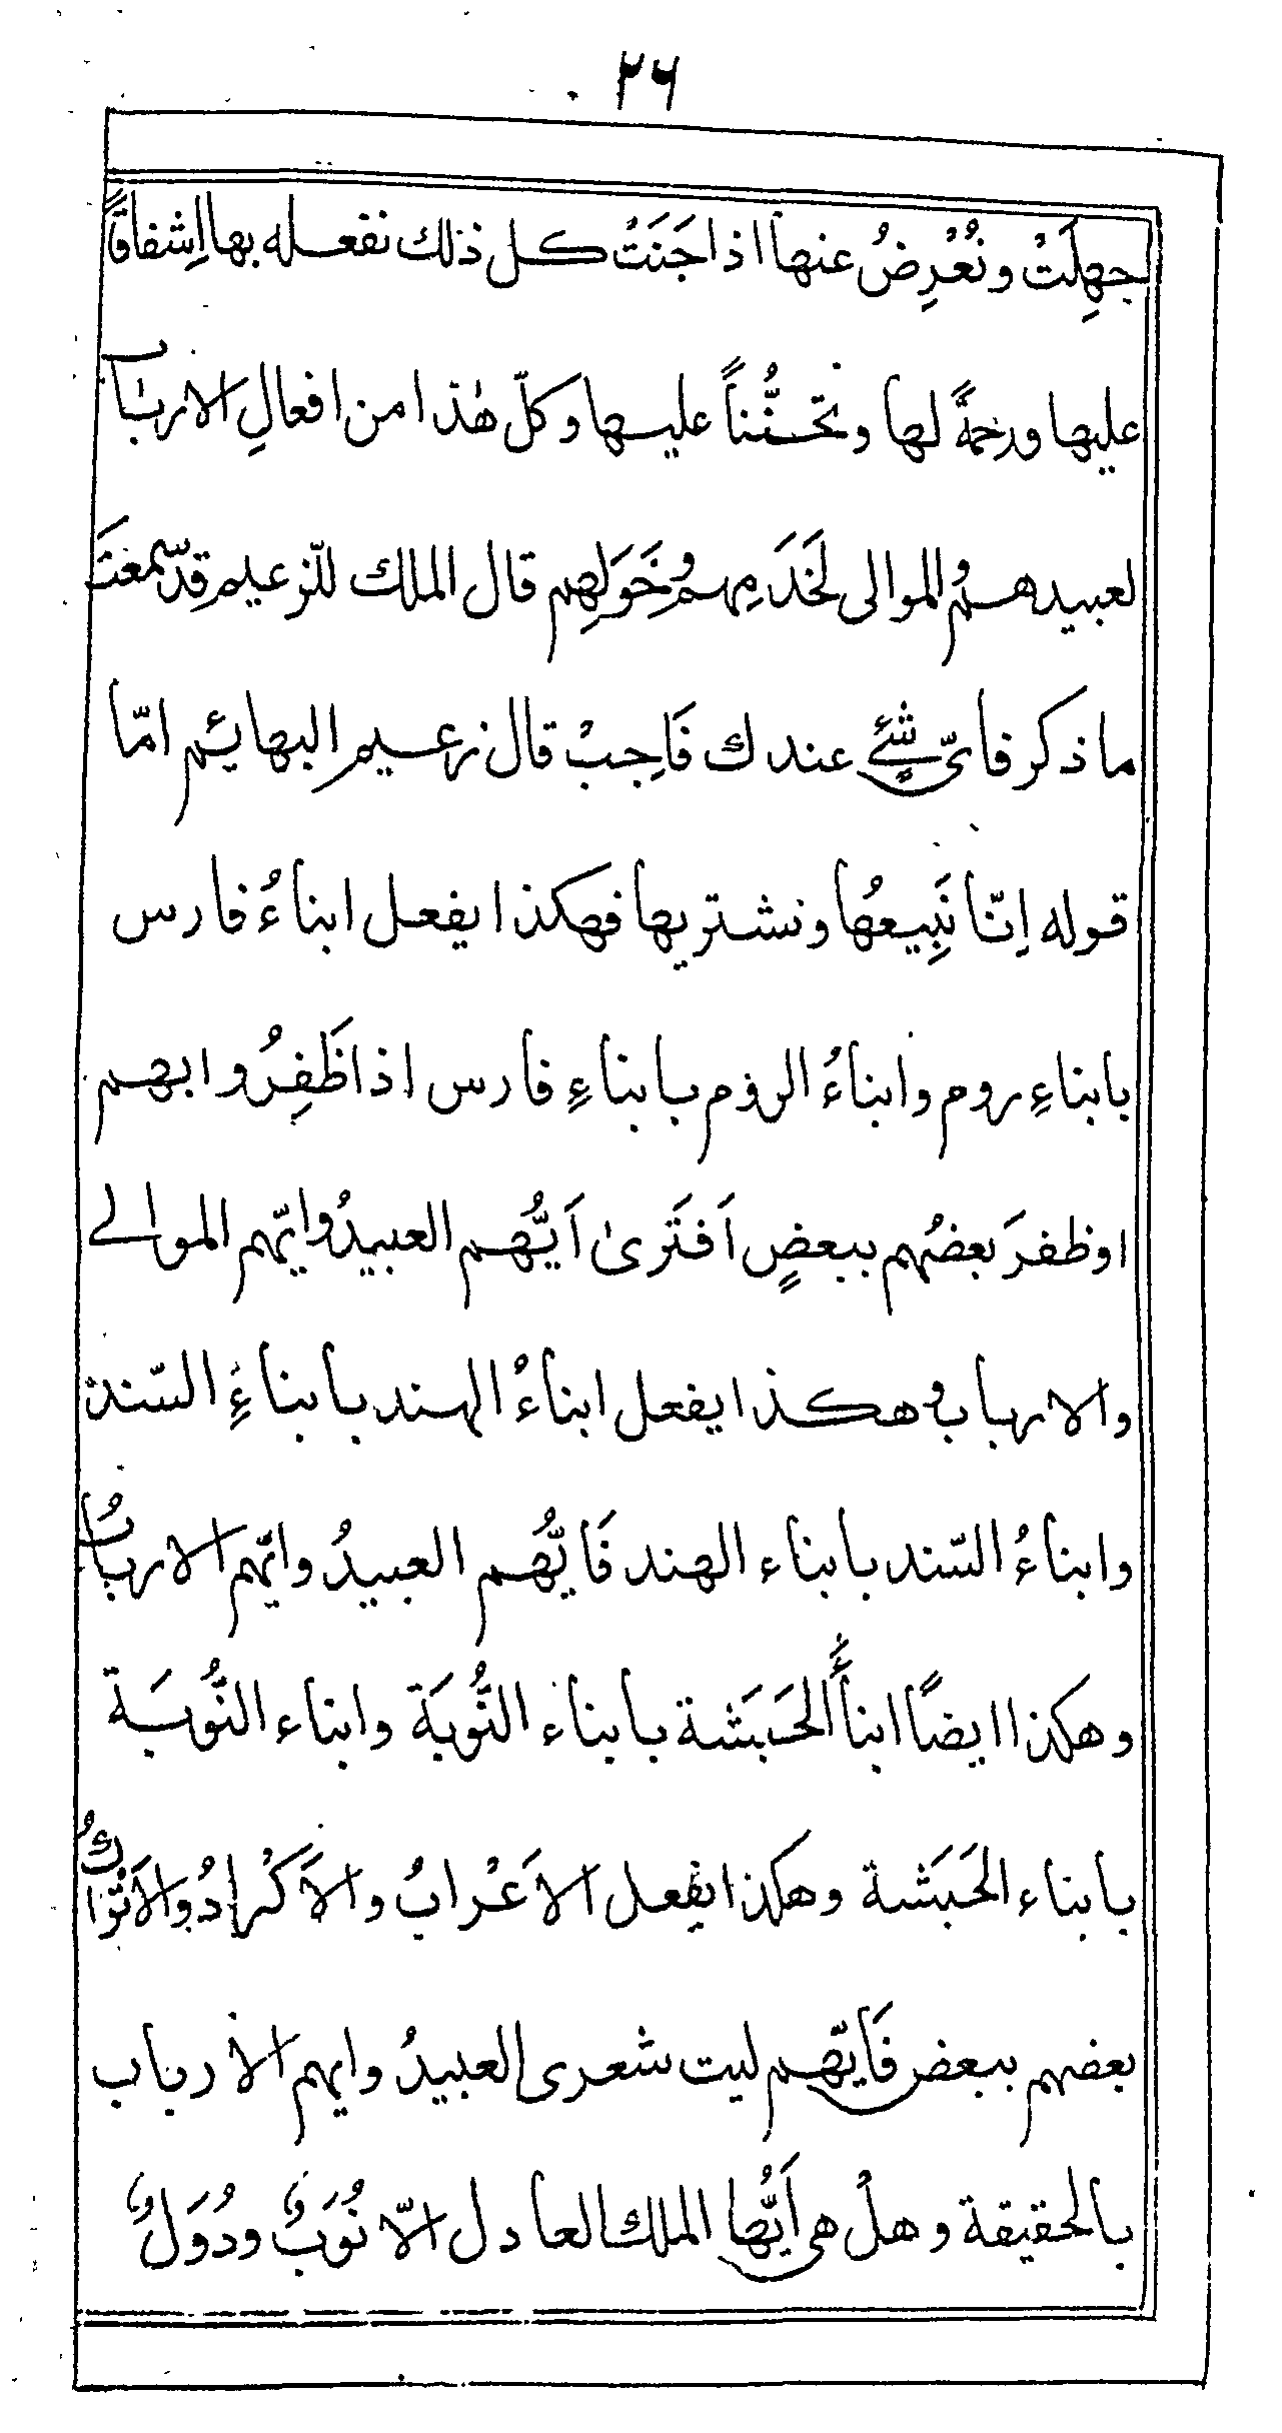 ٢٦
جهِلَتْ ونُعْرِضُ عنها اذا جَنَتْ كل ذلك نفعله بها اِشفاقًا
عليها ورحمةً لها وتحنُّناً عليها وكلّ هٰذا من افعالِ الارباب
لعبيدهم والموالی لخَدَمِهِم وخَوَلِهِم قال الملك للزعيم قد سمعتَ
ما ذكر فایّ شئے عندك فَاجِبْ قال زعيم البهائم امّا
قوله اِنّا نَبِيعُها ونشتريها فهكذا يفعل ابناءُ فارس
بابناءِ روم وابناءُ الروم بابناءِ فارس اذا ظَفِرُوا بهم
اوظفرَ بعضُهم ببعضٍ اَفتَریٰ اَيُّهم العبيدُ وايّهم الموالے
والاربابُ وهكذا يفعل ابناءُ الهند بابناءِ السّند
وابناءُ السّند بابناء الهند فَايُّهم العبيدُ وايّهم الاربابُ
وهكذا ايضًا ابناءُ الحَبَشة بابناء النُّوبَة وابناء النُّوبَة
بابناء الحَبَشة وهكذا يفعل الاَعْرابُ والاَكْرادُ والاَتْراكُ
بعضهم ببعض فَايّهم ليت شعری العبيدُ وايهم الارباب
بالحقيقة وهلْ هی اَيُّها الملك العادل الاّ نُوَبٌ ودُوَلٌ